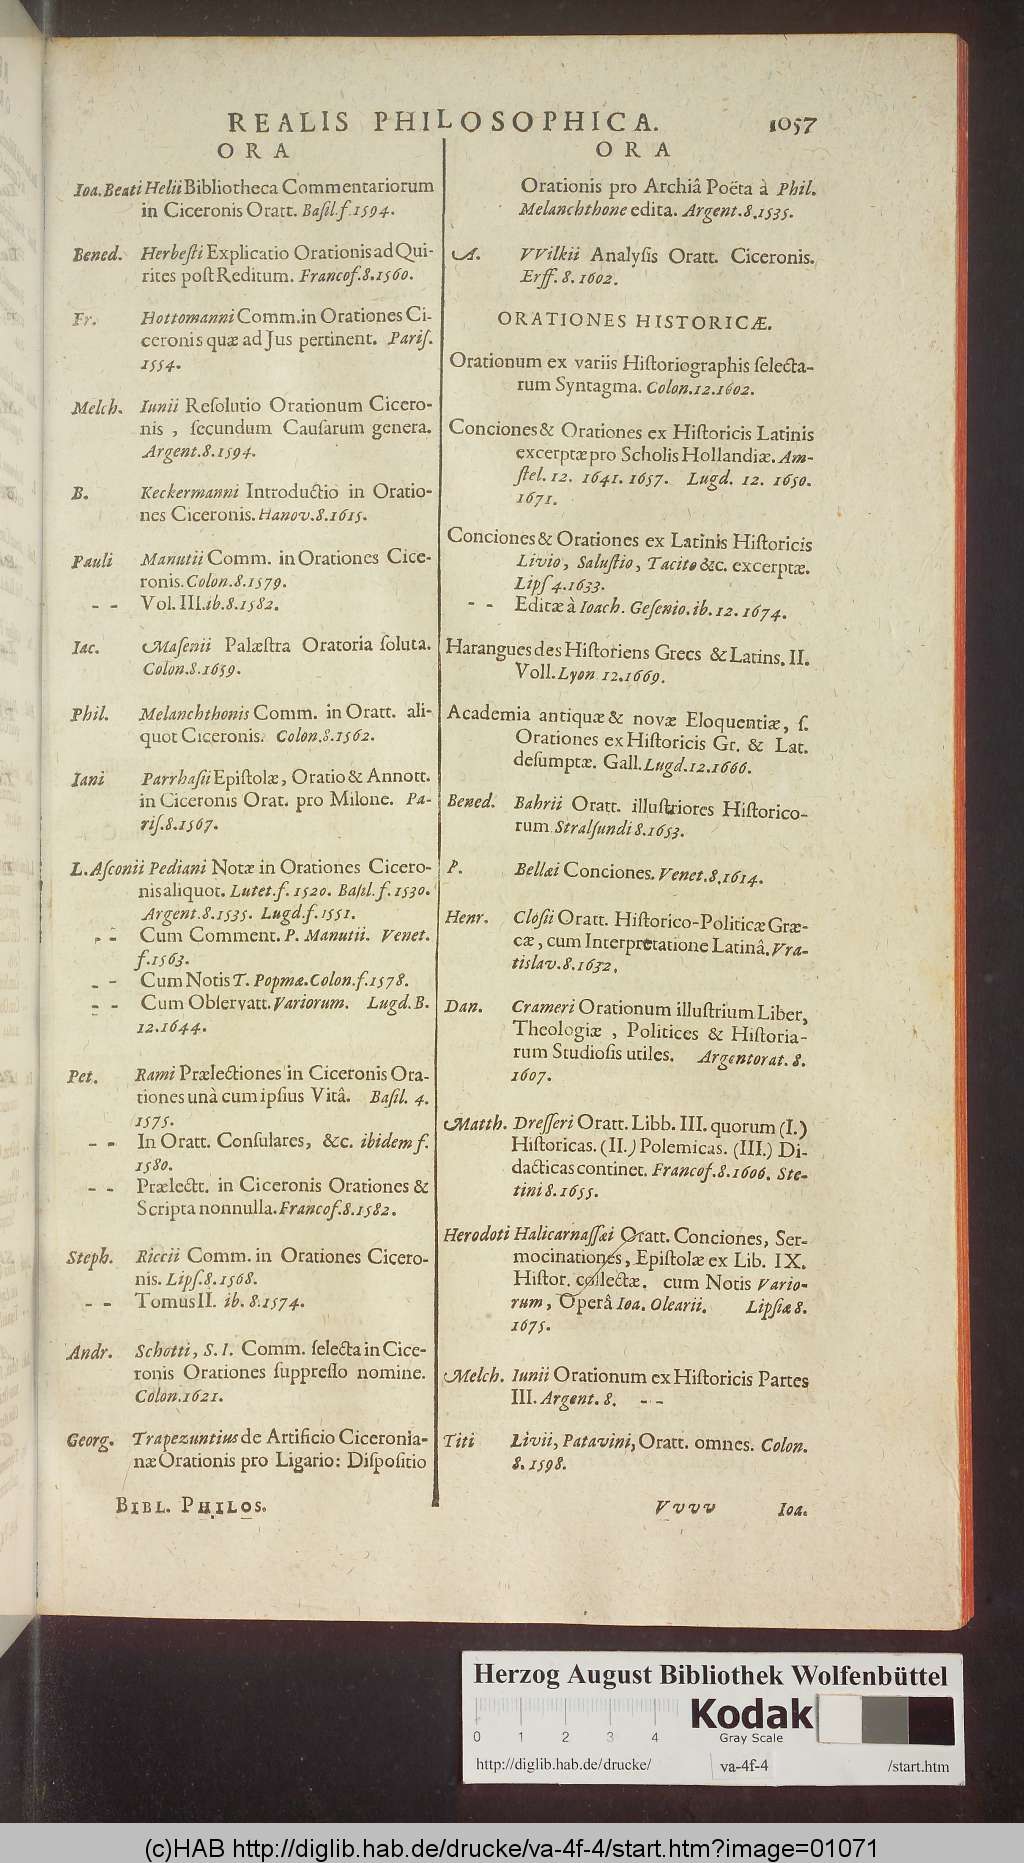 REALIS PHILOSOPHICA. 1057
ORA
Ioa. Beati Helii Bibliotheca Commentariorum
in Ciceronis Oratt. Baſil. f. 1594.
Bened. Herbeſti Explicatio Orationis ad Qui-
rites poſt Reditum. Francof. 8. 1560.
Fr. Hottomanni Comm. in Orationes Ci-
ceronis quæ ad Jus pertinent. Pariſ.
1554.
Melch. Iunii Reſolutio Orationum Cicero-
nis, ſecundum Cauſarum genera.
Argent. 8. 1594.
B. Keckermanni Introductio in Oratio-
nes Ciceronis. Hanov. 8. 1615.
Pauli Manutii Comm. in Orationes Cice-
ronis. Colon. 8. 1579.
- - Vol. III. ib. 8. 1582.
Iac. Maſenii Palæſtra Oratoria ſoluta.
Colon. 8. 1659.
Phil. Melanchthonis Comm. in Oratt. ali-
quot Ciceronis. Colon. 8. 1562.
Iani Parrhaſii Epiſtolæ, Oratio & Annott.
in Ciceronis Orat. pro Milone. Pa-
riſ. 8. 1567.
L. Aſconii Pediani Notæ in Orationes Cicero-
nis aliquot. Lutet. f. 1520. Baſil. f. 1530.
Argent. 8. 1535. Lugd. f. 1551.
- - Cum Comment. P. Manutii. Venet.
f. 1563.
- - Cum Notis T. Popmæ. Colon. f. 1578.
- - Cum Obſervatt. Variorum. Lugd. B.
12. 1644.
Pet. Rami Prælectiones in Ciceronis Ora-
tiones unà cum ipſius Vitâ. Baſil. 4.
1575.
- - In Oratt. Conſulares, &c. ibidem f.
1580.
- - Prælectt. in Ciceronis Orationes &
Scripta nonnulla. Francof. 8. 1582.
Steph. Riccii Comm. in Orationes Cicero-
nis. Lipſ. 8. 1568.
- - Tomus II. ib. 8. 1574.
Andr. Schotti, S. I. Comm. ſelecta in Cice-
ronis Orationes ſuppreſſo nomine.
Colon. 1621.
Georg. Trapezuntius de Artificio Ciceronia-
næ Orationis pro Ligario: Diſpoſitio
BIBL. PHILOS.
ORA
Orationis pro Archiâ Poëta à Phil.
Melanchthone edita. Argent. 8. 1535.
A. VVilkii Analyſis Oratt. Ciceronis.
Erff. 8. 1602.
ORATIONES HISTORICÆ.
Orationum ex variis Hiſtoriographis ſelecta-
rum Syntagma. Colon. 12. 1602.
Conciones & Orationes ex Hiſtoricis Latinis
excerptæ pro Scholis Hollandiæ. Am-
ſtel. 12. 1641. 1657. Lugd. 12. 1650.
1671.
Conciones & Orationes ex Latinis Hiſtoricis
Livio, Saluſtio, Tacito &c. excerptæ.
Lipſ 4. 1633.
- - Editæ à Ioach. Geſenio. ib. 12. 1674.
Harangues des Hiſtoriens Grecs & Latins. II.
Voll. Lyon 12. 1669.
Academia antiquæ & novæ Eloquentiæ, ſ.
Orationes ex Hiſtoricis Gr. & Lat.
deſumptæ. Gall. Lugd. 12. 1666.
Bened. Bahrii Oratt. illuſtriores Hiſtorico-
rum Stralſundi 8. 1653.
P. Bellæi Conciones. Venet. 8. 1614.
Henr. Cloſii Oratt. Hiſtorico-Politicæ Græ-
cæ, cum Interpretatione Latinâ. Vra-
tislav. 8. 1632.
Dan. Crameri Orationum illuſtrium Liber,
Theologiæ, Politices & Hiſtoria-
rum Studioſis utiles. Argentorat. 8.
1607.
Matth. Dreſſeri Oratt. Libb. III. quorum (I.)
Hiſtoricas. (II.) Polemicas. (III.) Di-
dacticas continet. Francof. 8. 1606. Ste-
tini 8. 1655.
Herodoti Halicarnaſſæi Oratt. Conciones, Ser-
mocinationes, Epiſtolæ ex Lib. IX.
Hiſtor. collectæ. cum Notis Vario-
rum, Operâ Ioa. Olearii. Lipſiæ 8.
1675.
Melch. Iunii Orationum ex Hiſtoricis Partes
III. Argent. 8. - -
Titi Livii, Patavini, Oratt. omnes. Colon.
8. 1598.
Vvvv Ioa.
Herzog August Bibliothek Wolfenbüttel
0 1 2 3 4
Kodak
Gray Scale
http://diglib.hab.de/drucke/ va-4f-4 /start.htm
(c)HAB http://diglib.hab.de/drucke/va-4f-4/start.htm?image=01071